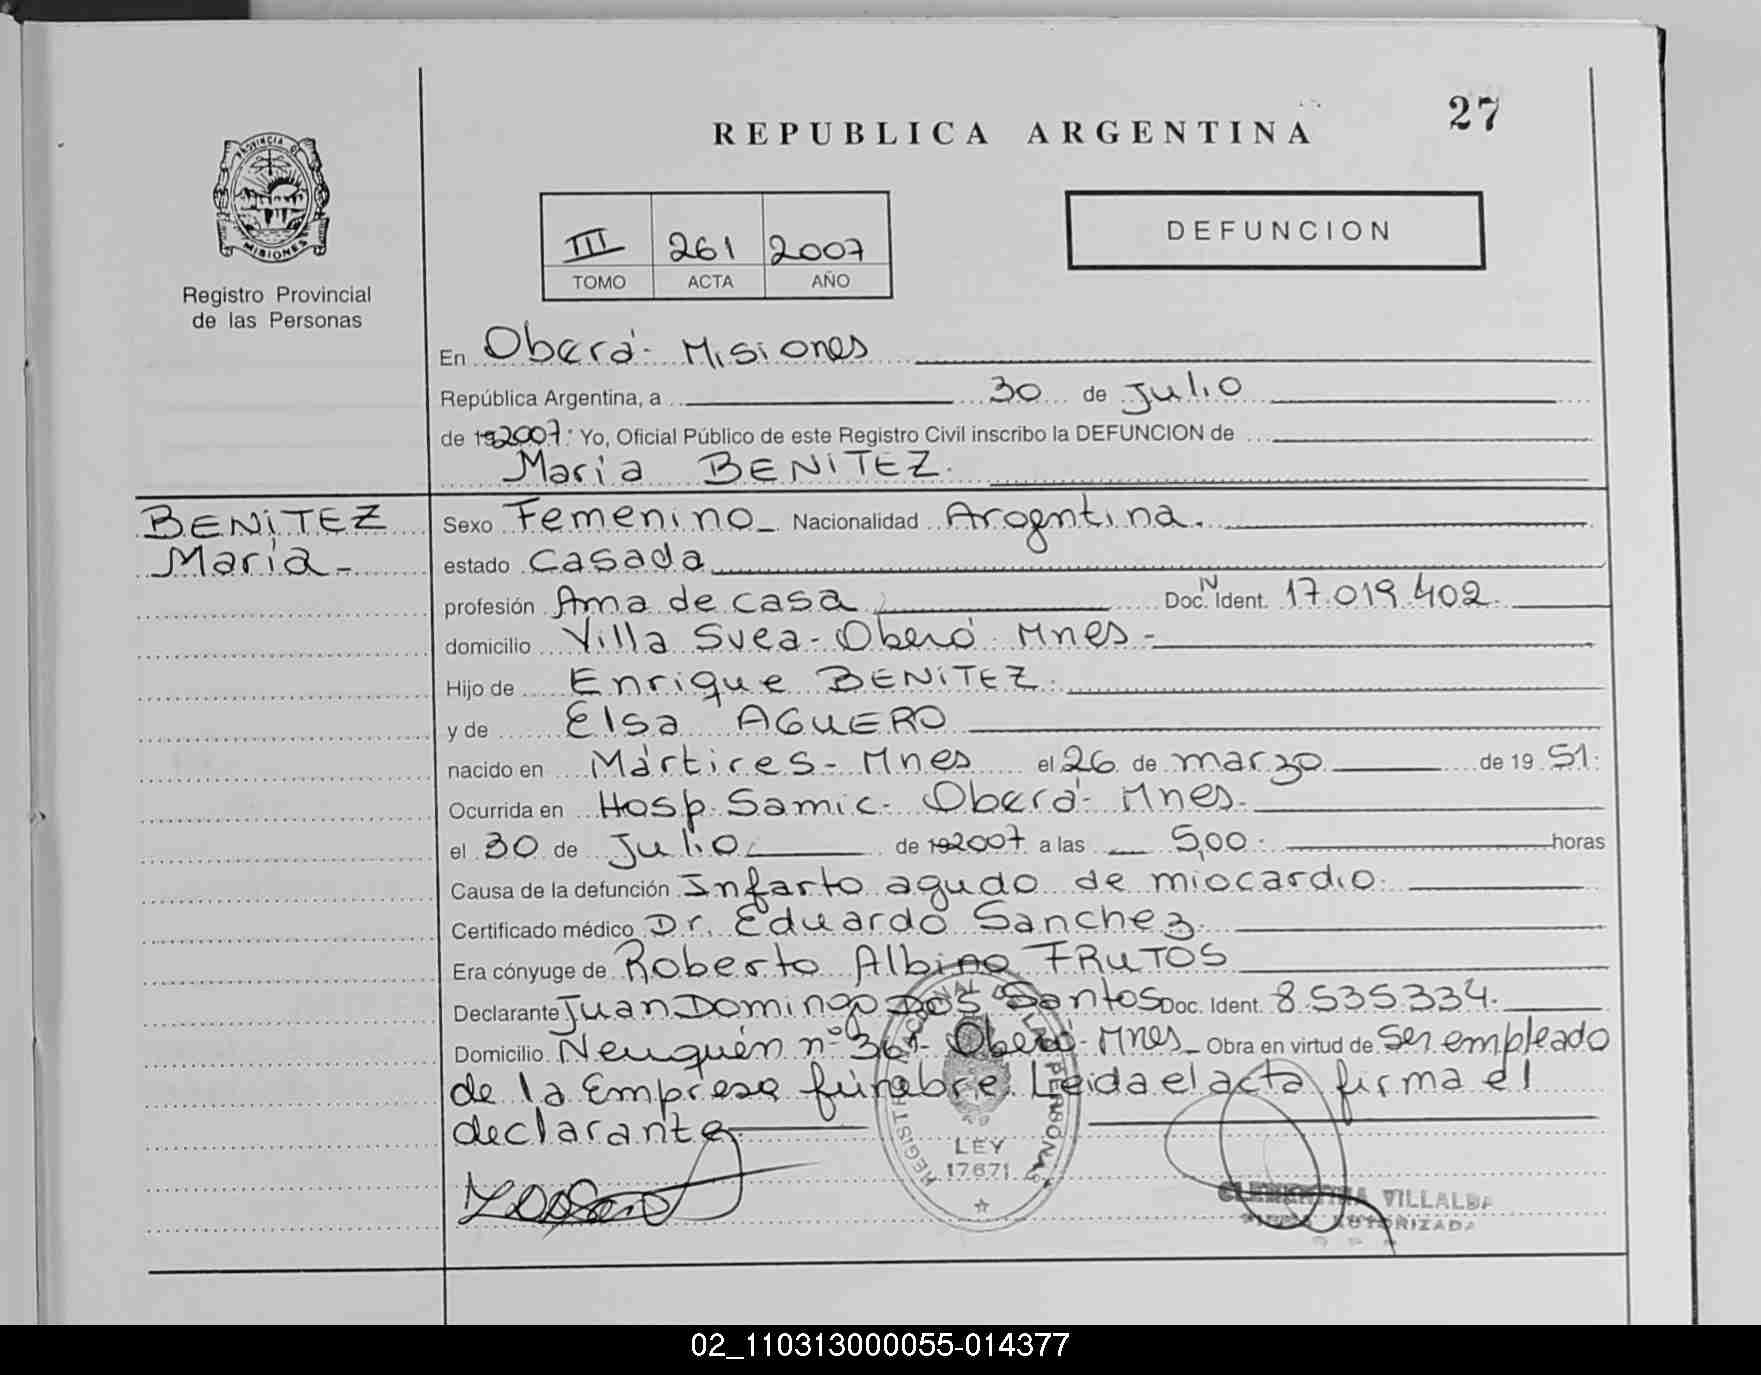 27
REPUBLICA ARGENTINA
PROVINCIA DE
MISIONES
Registro Provincial
de las Personas
III 261 2007
TOMO ACTA AÑO
DEFUNCION
En Oberá- Misiones
República Argentina, a 30 de Julio
de 192007. Yo, Oficial Público de este Registro Civil inscribo la DEFUNCION de
Maria BENITEZ.
BENITEZ
Maria -
Sexo Femenino_ Nacionalidad Argentina.
estado Casada
profesión Ama de casa Doc. N Ident. 17.019.402.
domicilio Villa Svea - Oberá Mnes -
Hijo de Enrique BENITEZ.
y de Elsa AGUERO
nacido en Mártires - Mnes el 26 de marzo de 19 51.
Ocurrida en Hosp. Samic - Oberá - Mnes.
el 30 de Julio de 192007 a las 5,00 horas
Causa de la defunción Infarto agudo de miocardio.
Certificado médico Dr. Eduardo Sanchez.
Era cónyuge de Roberto Albino FRUTOS
Declarante Juan Domingo DOS Santos Doc. Ident. 8.535.334.
Domicilio Neuquén nº 361- Oberá - Mnes_ Obra en virtud de ser empleado
de la Empresa fúnebre. Leida el acta firma el
declarante
REGISTRO NACIONAL DE LAS PERSONAS
LEY
17671
CLEMENTINA VILLALBA
AUTORIZADA
02_110313000055-014377